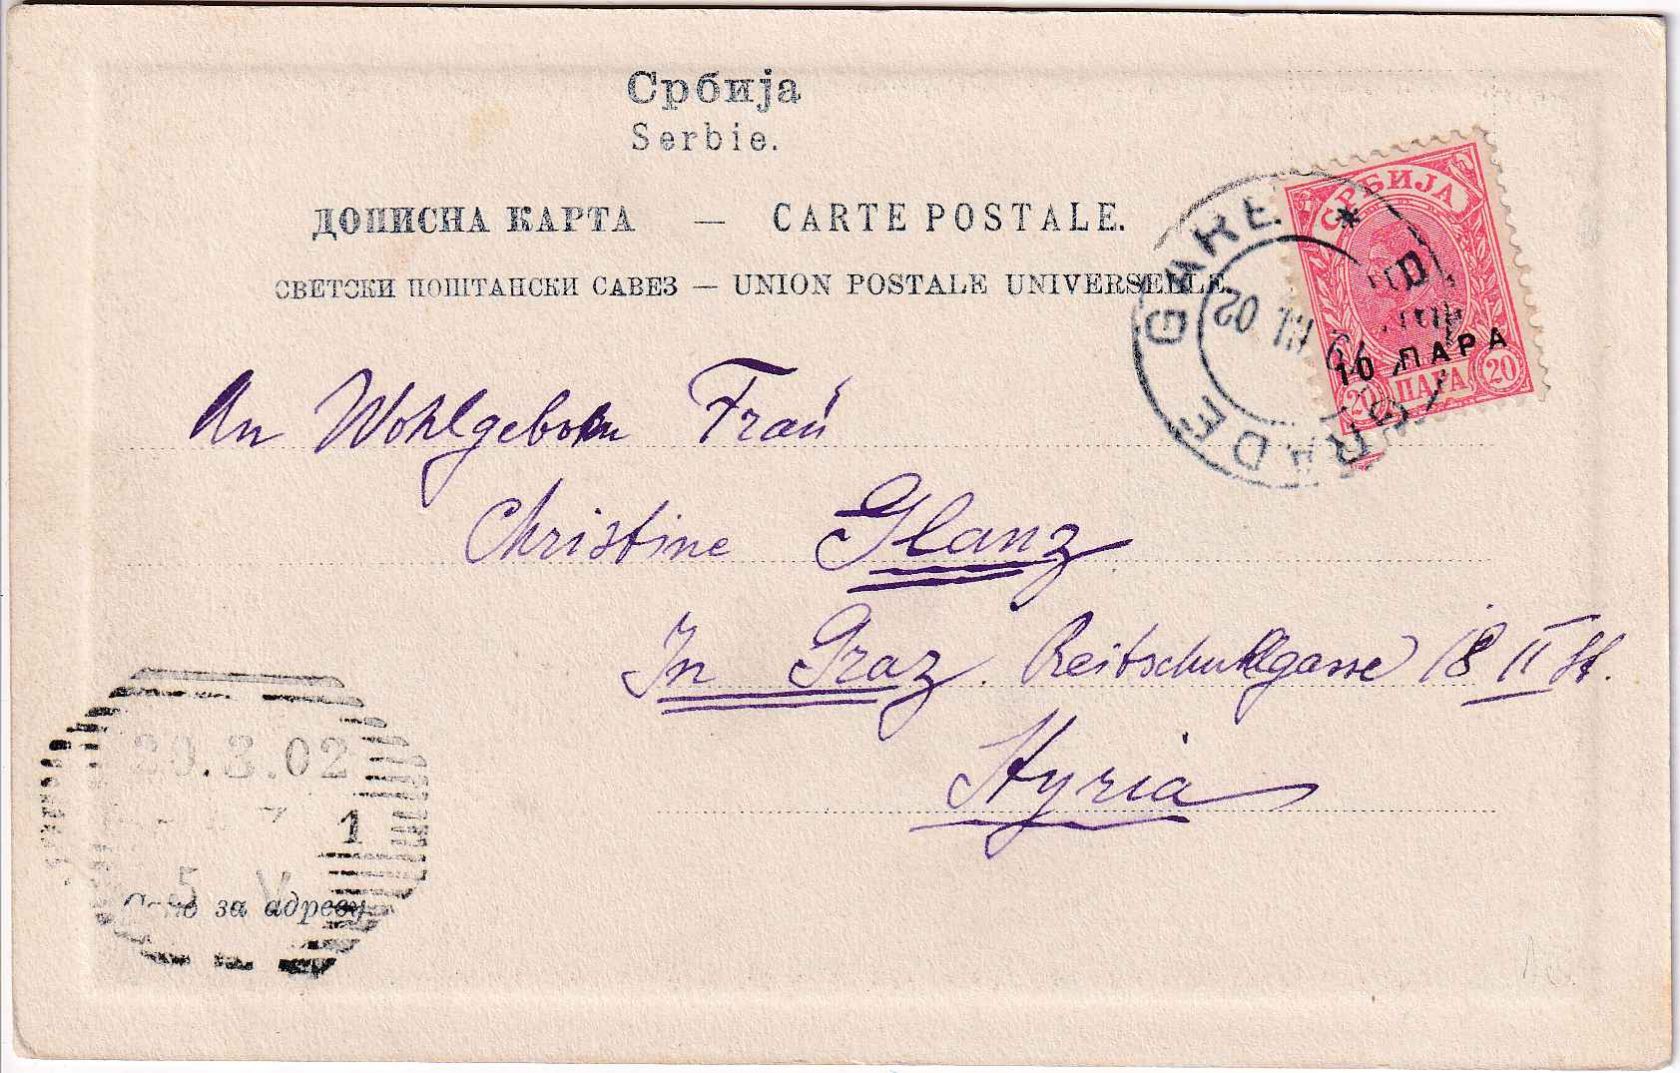 Србија
Serbie.
ДОПИСНА КАРТА — CARTE POSTALE.
СВЕТСКИ ПОШТАНСКИ САВЕЗ — UNION POSTALE UNIVERSELLE.
СРБИЈА
10 ПАРА
20 ПАРА 20
GARE *
GRADE
02
An Wohlgeborn Frau
Christine Glanz
In Graz. Reitschullgasse 18 II St.
Styria
20.3.02
1
5 V
за адресу